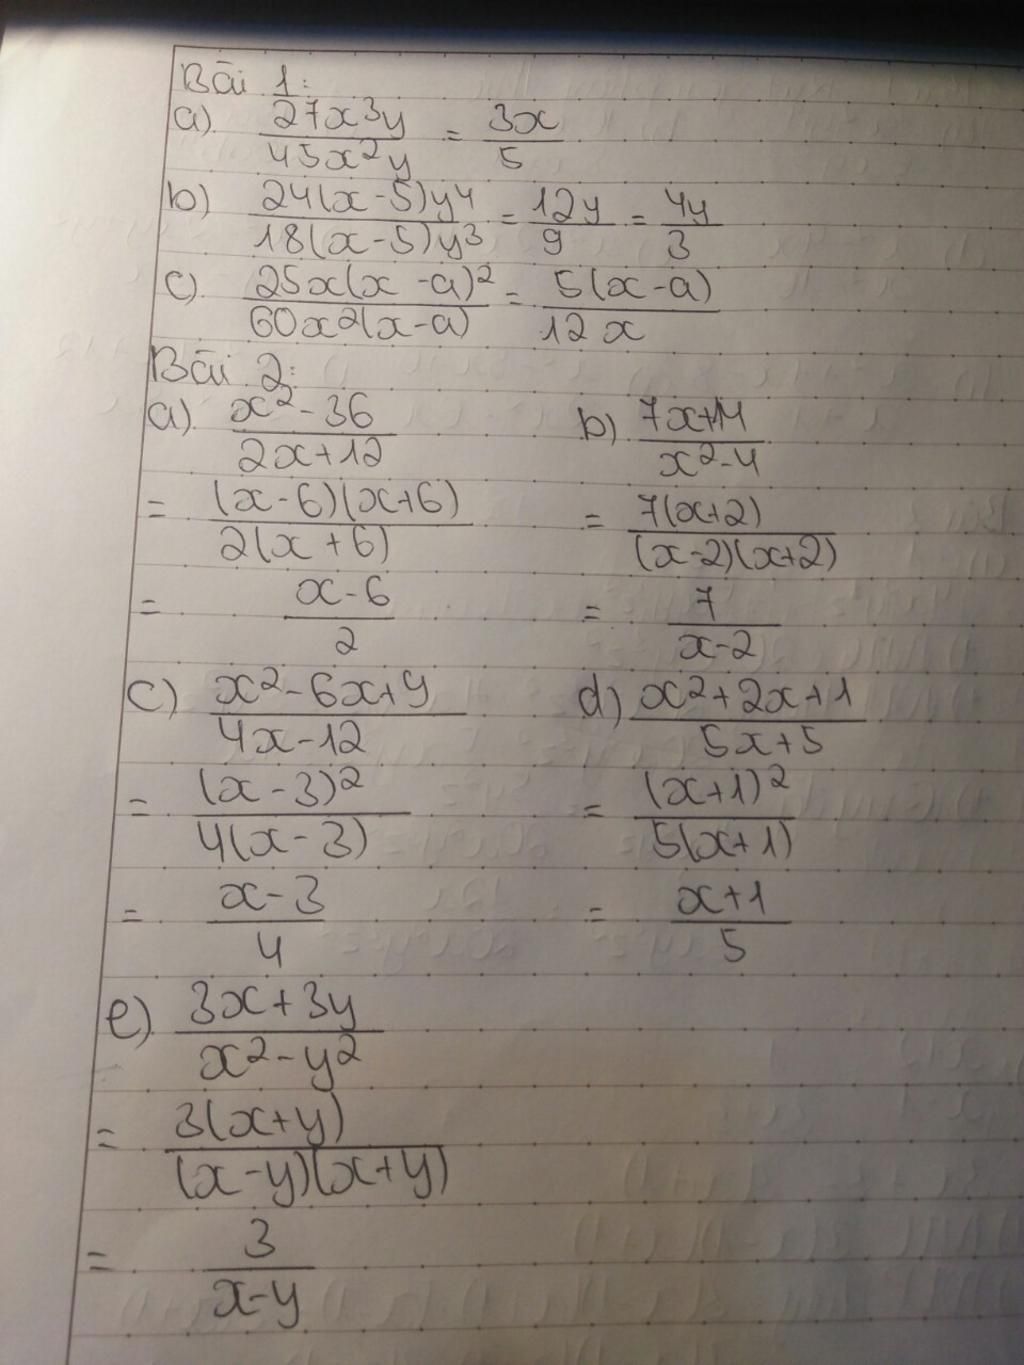 Bài 1:
a) 27x3y/45x2y = 3x/5
b) 24(x-5)y4/18(x-5)y3 = 12y/9 = 4y/3
c) 25x(x-a)2/60x2(x-a) = 5(x-a)/12x
Bài 2:
a) x2-36/2x+12 b) 7x+14/x2-4
= (x-6)(x+6)/2(x+6) = 7(x+2)/(x-2)(x+2)
= x-6/2 = 7/x-2
c) x2-6x+9/4x-12 d) x2+2x+1/5x+5
= (x-3)2/4(x-3) = (x+1)2/5(x+1)
= x-3/4 = x+1/5
e) 3x+3y/x2-y2
= 3(x+y)/(x-y)(x+y)
= 3/x-y